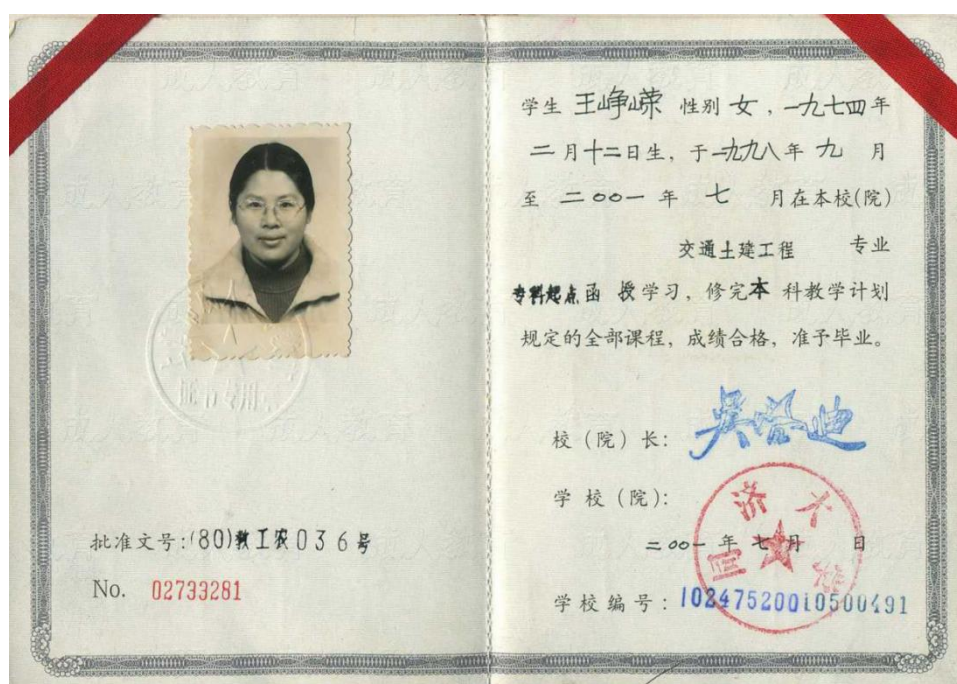 批准文号:(80)教工农036号
No. 02733281
学生 王峥嵘 性别 女,一九七四年
二月十二日生,于一九九八年九月
至二〇〇一年七月在本校(院)
交通土建工程 专业
专科起点函授学习,修完本科教学计划
规定的全部课程,成绩合格,准予毕业。
校(院)长: 吴启迪
学校(院):
同济大学
二〇〇一年七月 日
学校编号:10247520010500491